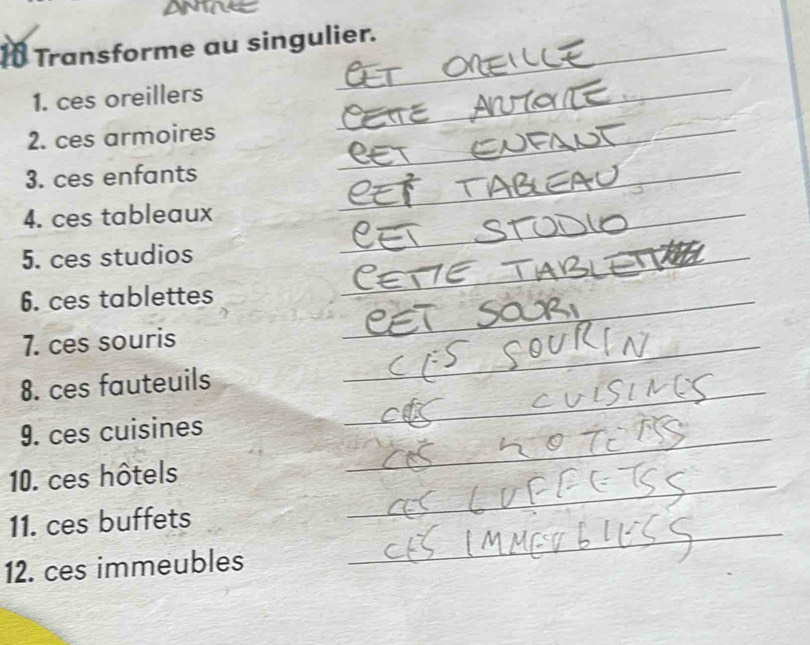 ANTREE
10 Transforme au singulier.
1. ces oreillers CET OREILLE
2. ces armoires CETTE
3. ces enfants CET ENFANT
4. ces tableaux CET TABLEAU
5. ces studios CET STUDIO
6. ces tablettes CETTE TABLETT
7. ces souris CET SOURI
8. ces fauteuils CES SOURIN
9. ces cuisines CES CUISINES
10. ces hôtels CES
11. ces buffets CES
12. ces immeubles CES